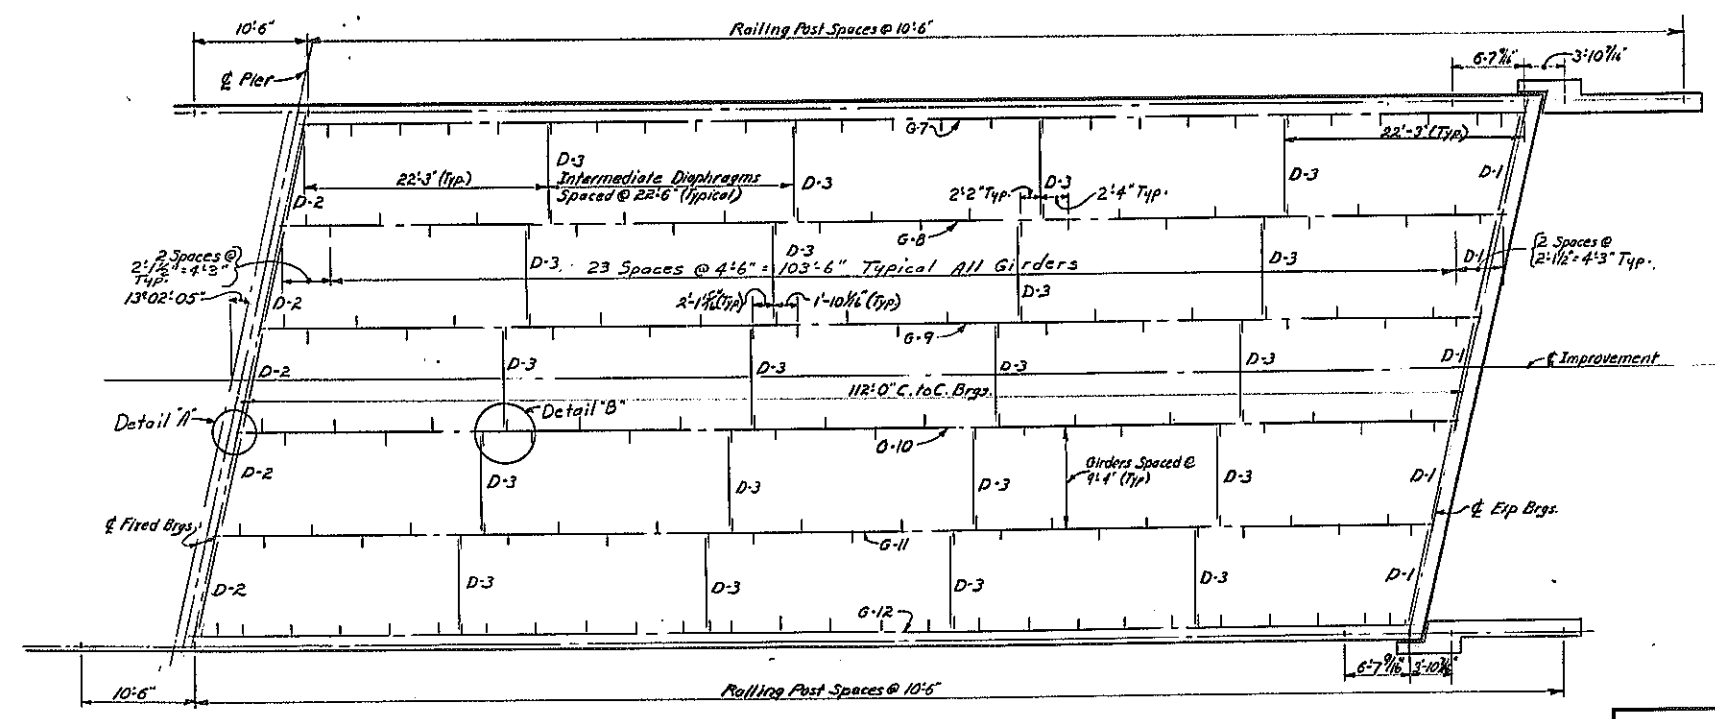 10'-6"
Railing Post Spaces @ 10'-6"
6'-7 9/16"
3'-10 7/16"
℄ Pier
G-7
22'-3" (Typ.)
D-3
22'-3" (Typ.)
Intermediate Diaphragms
Spaced @ 22'-6" (Typical)
D-3
2'-2" Typ.
D-3
2'-4" Typ.
D-3
D-1
D-2
G-8
2 Spaces @
2'-1 1/2" = 4'-3"
Typ.
D-3
D-3
23 Spaces @ 4'-6" = 103'-6" Typical All Girders
D-3
D-1
2 Spaces @
2'-1 1/2" = 4'-3" Typ.
13°02'05"
D-2
(Typ)
1'-10 1/16" (Typ)
D-3
G-9
D-2
D-3
D-3
D-3
D-3
D-1
℄ Improvement
112'-0" C. to C. Brgs.
Detail "A"
Detail "B"
G-10
D-2
D-3
D-3
D-3
Girders Spaced @
9'-4" (Typ)
D-3
D-1
℄ Fixed Brgs.
℄ Exp Brgs.
G-11
D-2
D-3
D-3
D-3
D-3
D-1
G-12
6'-7 9/16"
3'-10 7/16"
10'-6"
Railing Post Spaces @ 10'-6"